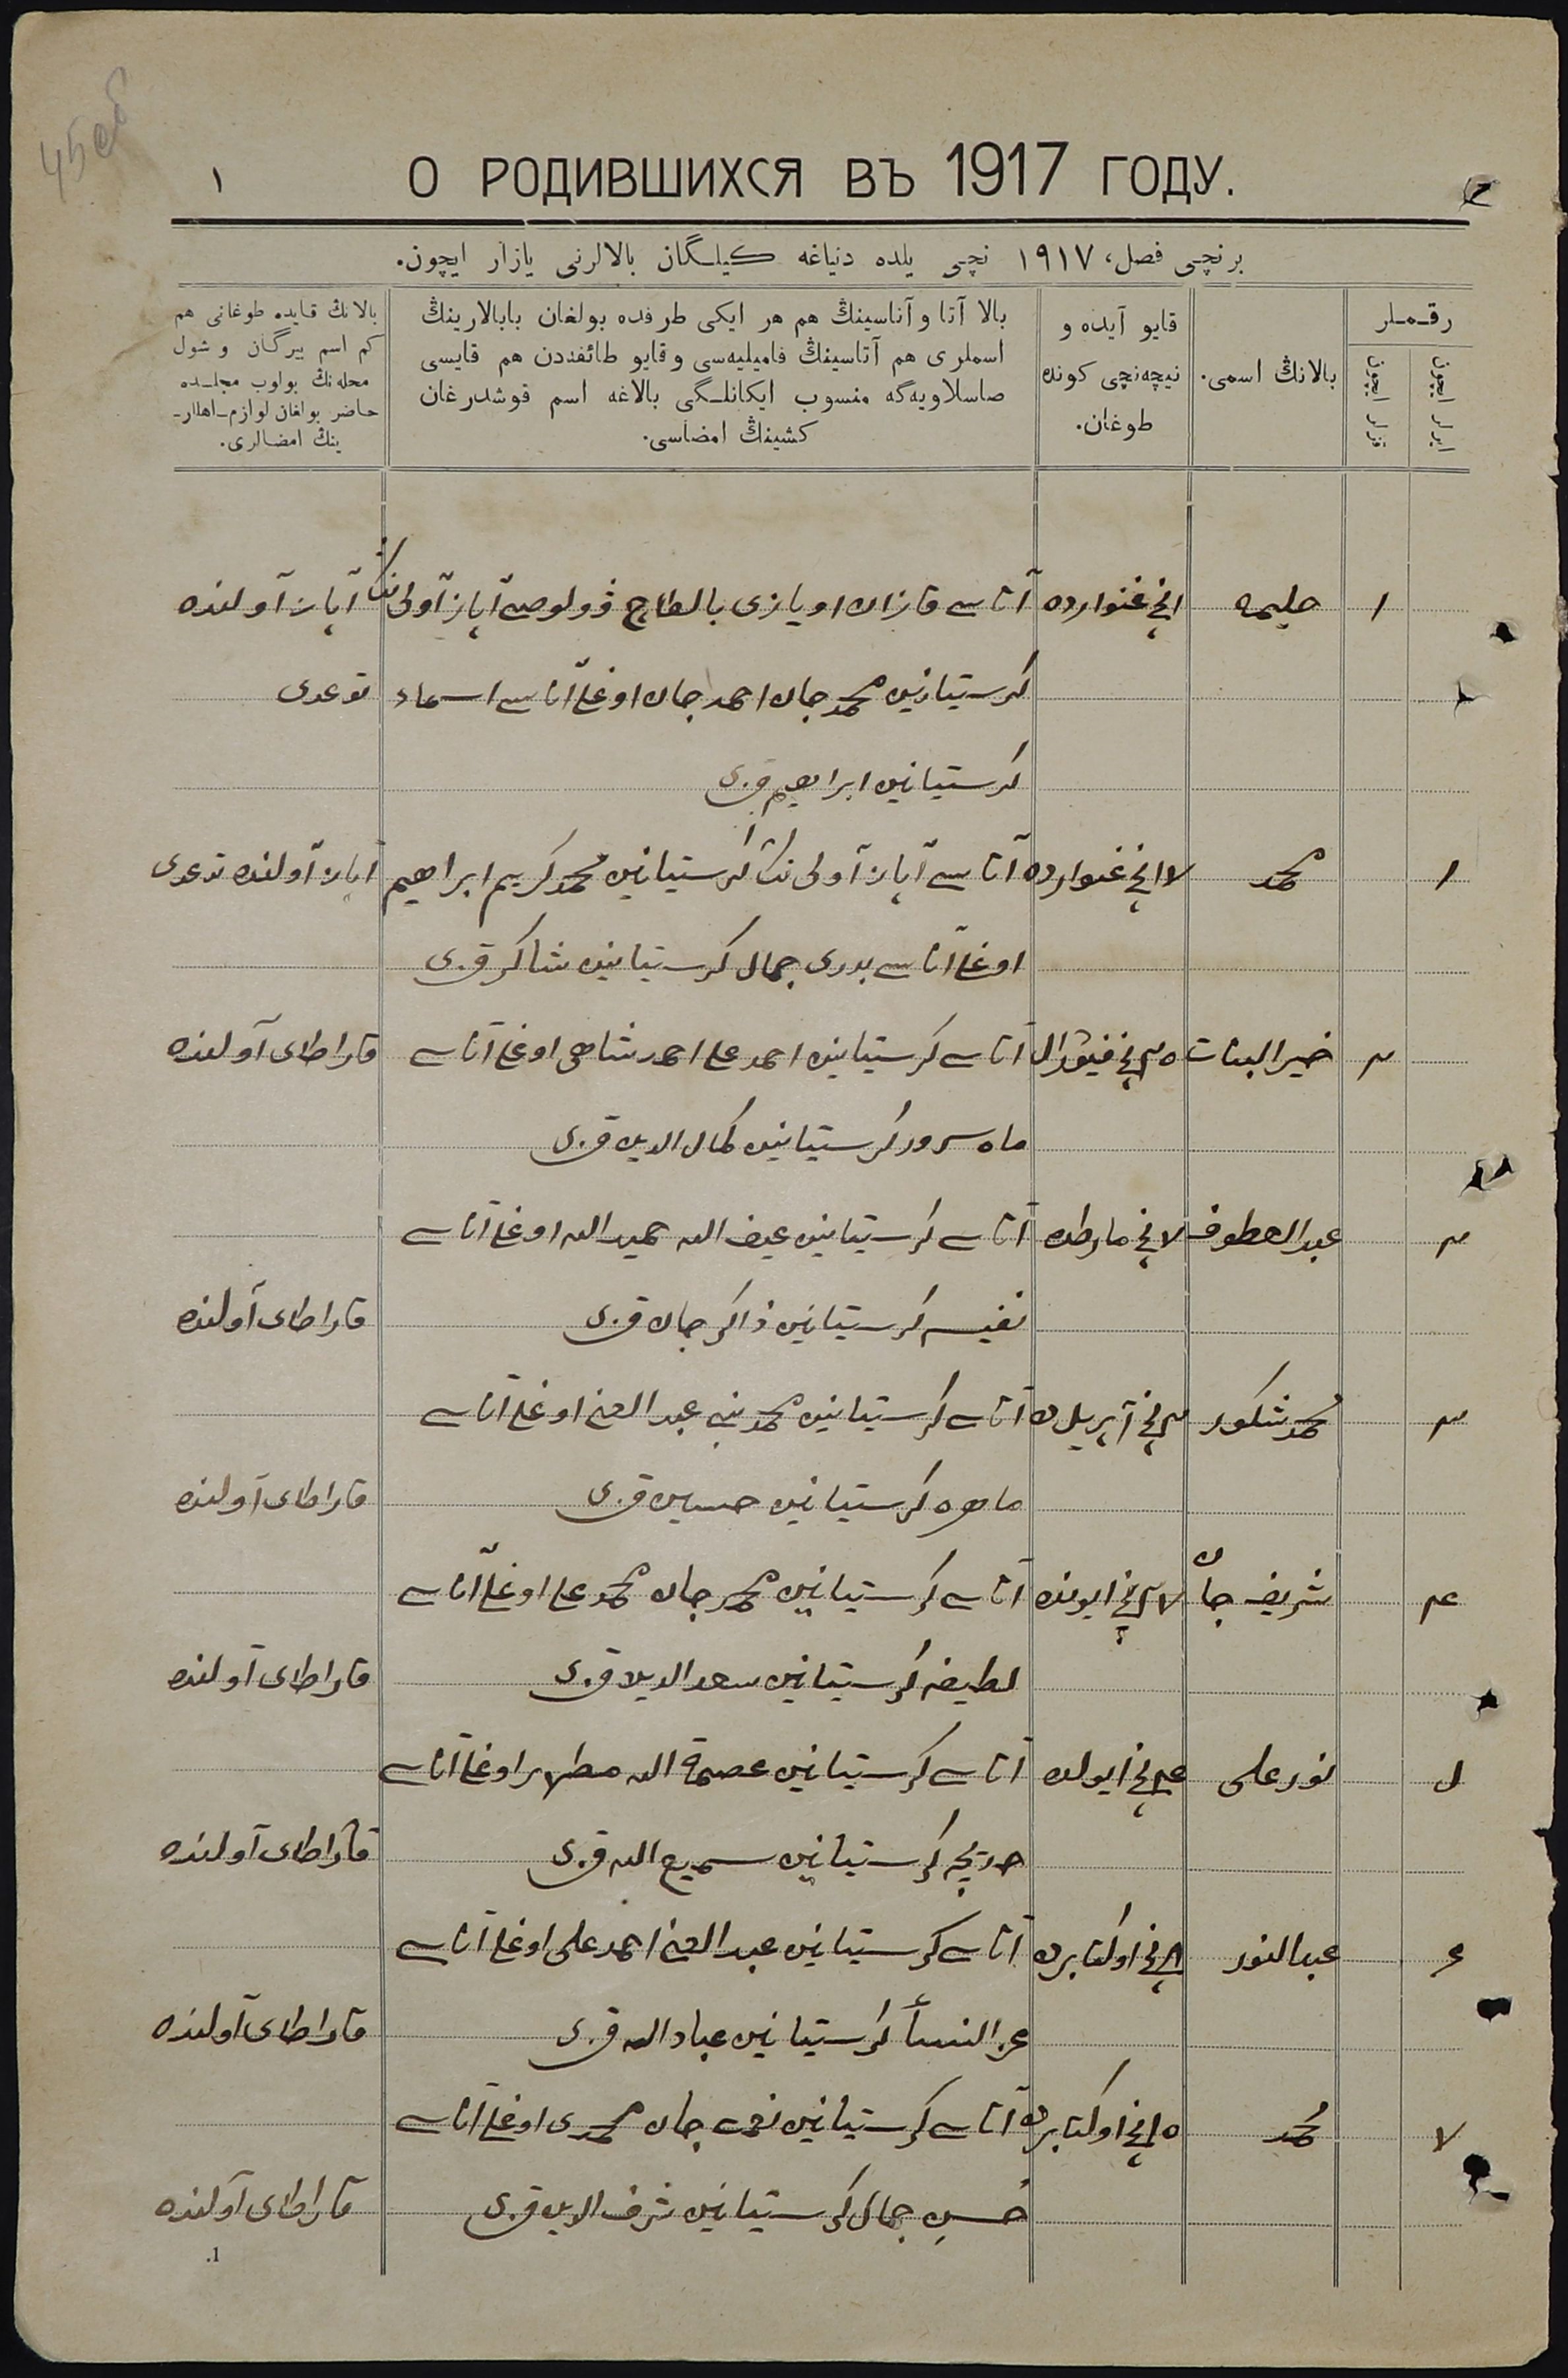 45 об
١
О РОДИВШИХСЯ ВЪ 1917 ГОДУ.
برنچی فصل، ١٩١٧ نچی یلده دنیاغه کیلـگان بالالرنی یازار ایچون.
رقـمـلر
ایرلر ایچون
قزلر ایچون
بالانڭ اسمی.
قایو آیده و
نیچه‌نچی کونده
طوغان.
بالا آتا و آناسینڭ هم هر ایکی طرفده بولغان بابالارینڭ
اسملری هم آتاسینڭ فامیلیه‌سی و قایو طائفه‌دن هم قایسی
صاسلاویه‌گه منسوب ایکانلـگی بالاغه اسم قوشدرغان
کشینڭ امضاسی.
بالانڭ قایده طوغانی هم
کم اسم بیرگان و شول
محله‌نڭ بولوب مجلـده
حاضر بولغان لوازم‌ـاهلارـ
ینڭ امضالری.
١ حلیمه ١نچی غنوارده آتاسی قازان اویازی بالطاچ وولوصی آپاز آولی‌نڭ آپاز آولنده
کرستیانین محمدجان احمدجان اوغلی آناسی اسماء توغدی
کرستیانین ابراهیم قزی
١ محمد ١٧نچی غنوارده آتاسی آپاز آولی‌نڭ کرستیانین محمدکریم ابراهیم آپاز آولنده توغدی
اوغلی آناسی بدری جمال کرستیانین شاکر قزی
٢ خیرالبنات ٢٥نچی فیورال آتاسی کرستیانین احمدعلی احمدشاهی اوغلی آناسی قاراطای آولنده
ماه سرور کرستیانین کمال الدین قزی
٢ عبدالعطوف ٧نچی مارطده آتاسی کرستیانین عیف الله حمیدالله اوغلی آناسی
نفیسه کرستیانین ذاکرجان قزی قاراطای آولنده
٣ محمدشکور ٣نچی آپریلده آتاسی کرستیانین محمدنبی عبدالغنی اوغلی آناسی
ماهره کرستیانین حسین قزی قاراطای آولنده
٤ شریف جان ٢٧نچی ایونده آتاسی کرستیانین محمدجان محمدعلی اوغلی آناسی
لطیفه کرستیانین سعدالدین قزی قاراطای آولنده
٥ نورعلی ٢٤نچی ایولده آتاسی کرستیانین عصمة الله مطهر اوغلی آناسی
خدیجه کرستیانین سمیع الله قزی قاراطای آولنده
٦ عبدالنور نچی اوکتابرده آتاسی کرستیانین عبدالغنی احمدعلی اوغلی آناسی
النسأ کرستیانین عبادالله قزی قاراطای آولنده
٧ محمد ١٥نچی اوکتابرده آتاسی کرستیانین نعمت جان محمدی اوغلی آناسی
حسن جمال کرستیانین شرف الدین قزی قاراطای آولنده
1.